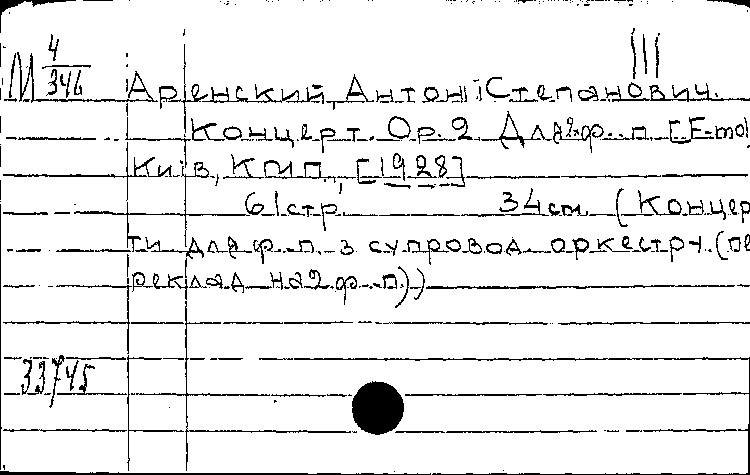 III
М 4/346
Аренский, Антоній Степанович.
Концерт. Op. 2. Для 2 ф.-п. [F-mol
Київ, КМП, [1928]
61 стр. 34 см. (Концер
ти для ф.-п. з супровод. оркестру. (пе
реклад на 2 ф.-п.))
33745